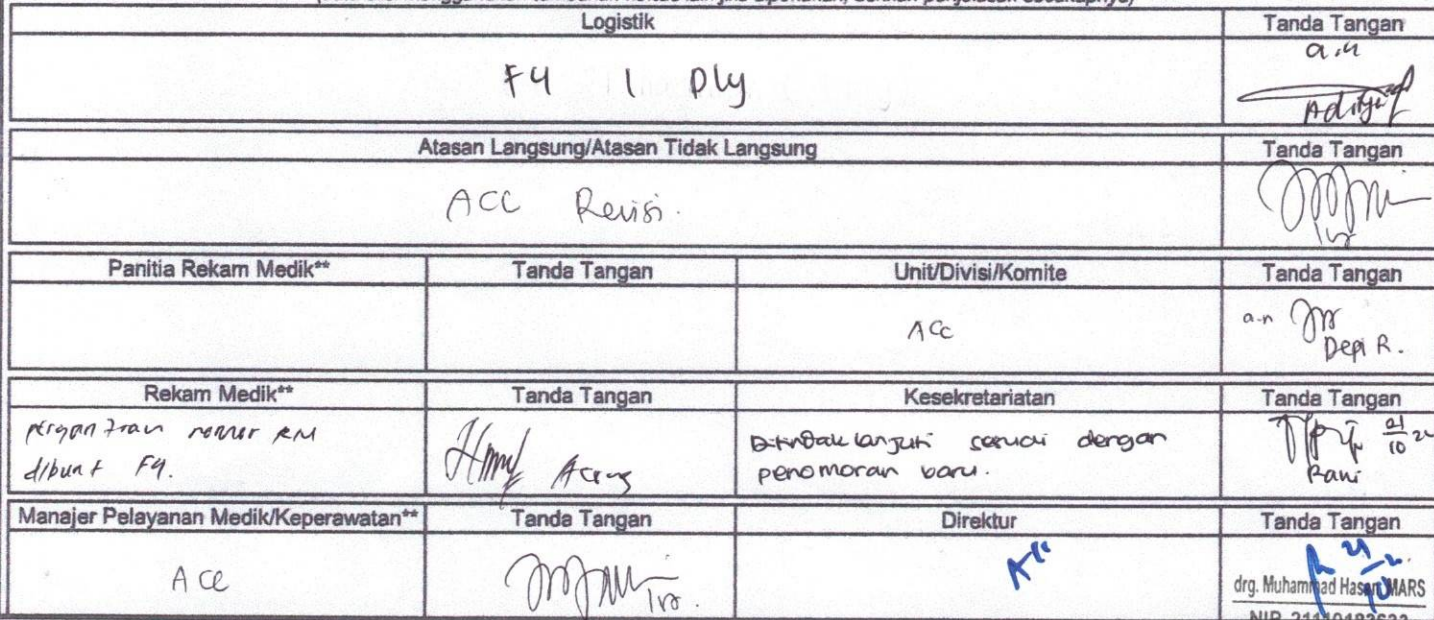 Logistik Tanda Tangan
F4 1 Ply
a.n
Atasan Langsung/Atasan Tidak Langsung Tanda Tangan
ACC Revisi.
Panitia Rekam Medik** Tanda Tangan Unit/Divisi/Komite Tanda Tangan
ACC
a.n
Depi R.
Rekam Medik** Tanda Tangan Kesekretariatan Tanda Tangan
nomor RM
dibuat F4.
Ditindaklanjuti sesuai dengan
penomoran baru.
21/10 24
Rani
Manajer Pelayanan Medik/Keperawatan** Tanda Tangan Direktur Tanda Tangan
ACC
Acc
drg. Muhammad Hasan, MARS